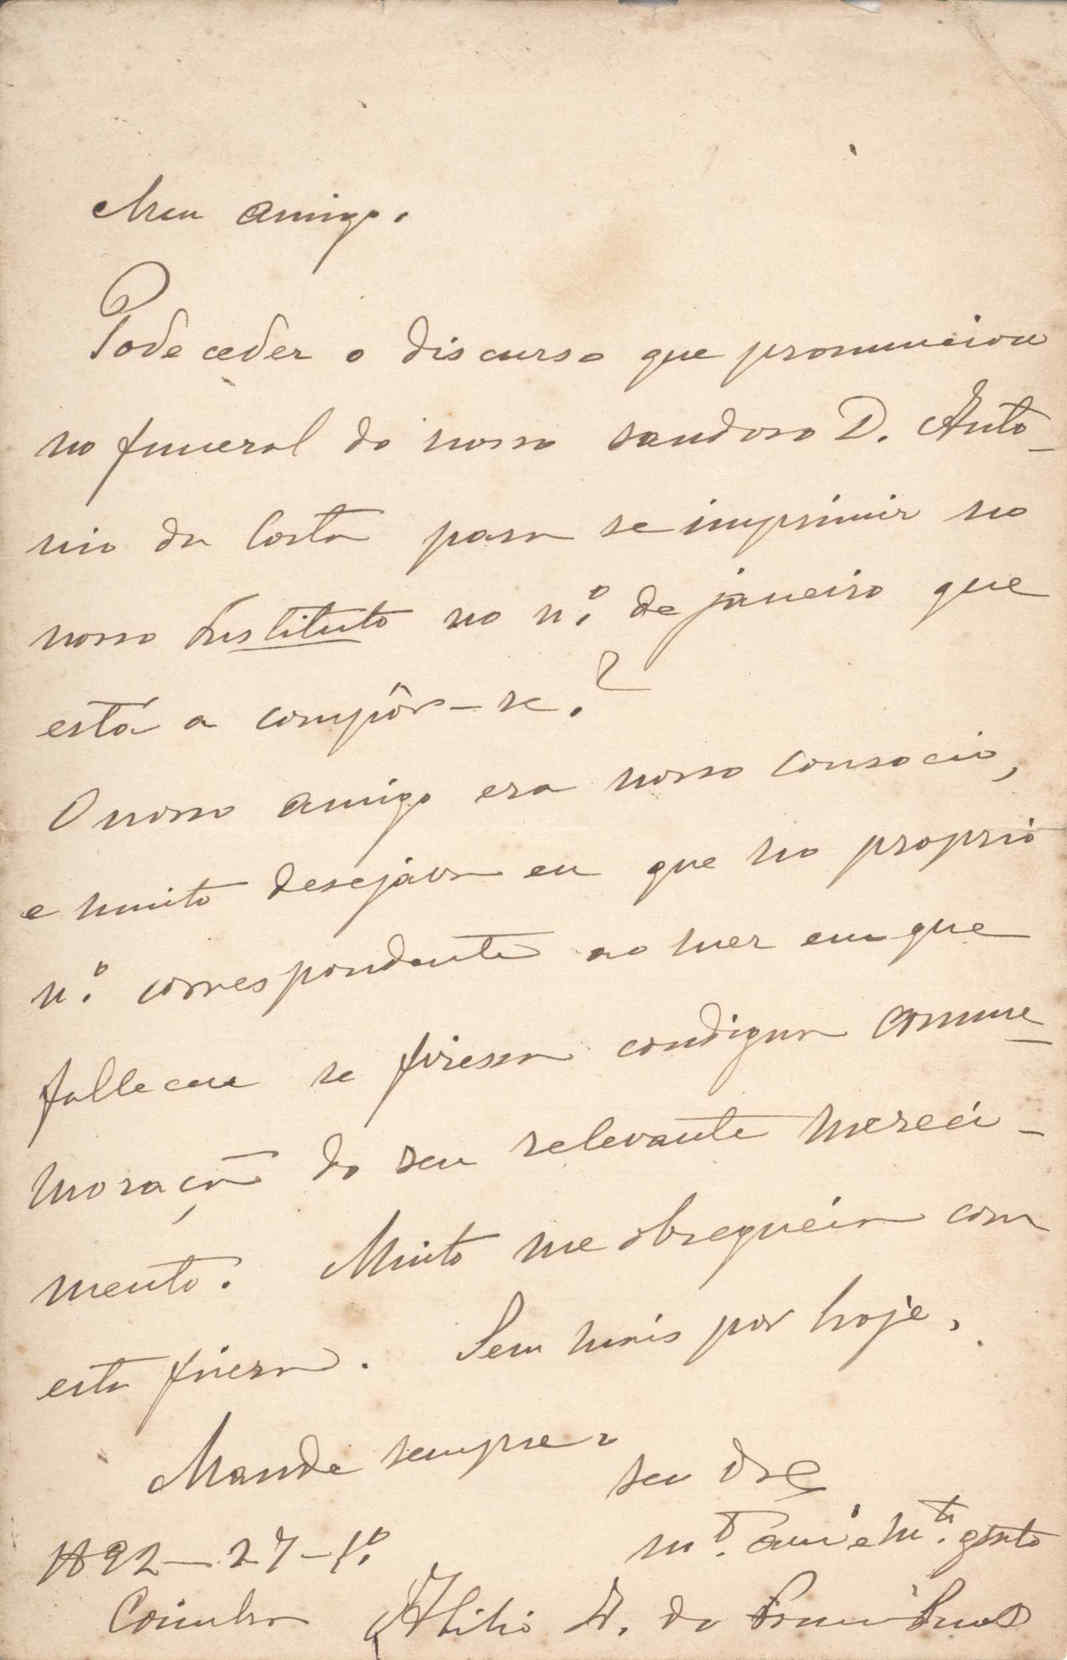 Meu amigo.
Pode ceder o discurso que pronunciou
no funeral do nosso saudoso D. Anto-
nio da Costa para se imprimir no
nosso Instituto no n.º de janeiro que
está a compôr-se.?
O nosso amigo era nosso consocio,
e muito desejava eu que no proprio
n.º correspondente ao mez em que
falleceu se fizesse condigna comme-
moração do seu relevante mereci-
mento. Muito me obsequeia com
esta fineza. Sem mais por hoje,
Mande sempre
seu
m.to am.º e m.to
1892—27—1.º
Coimbra Abilio A. da